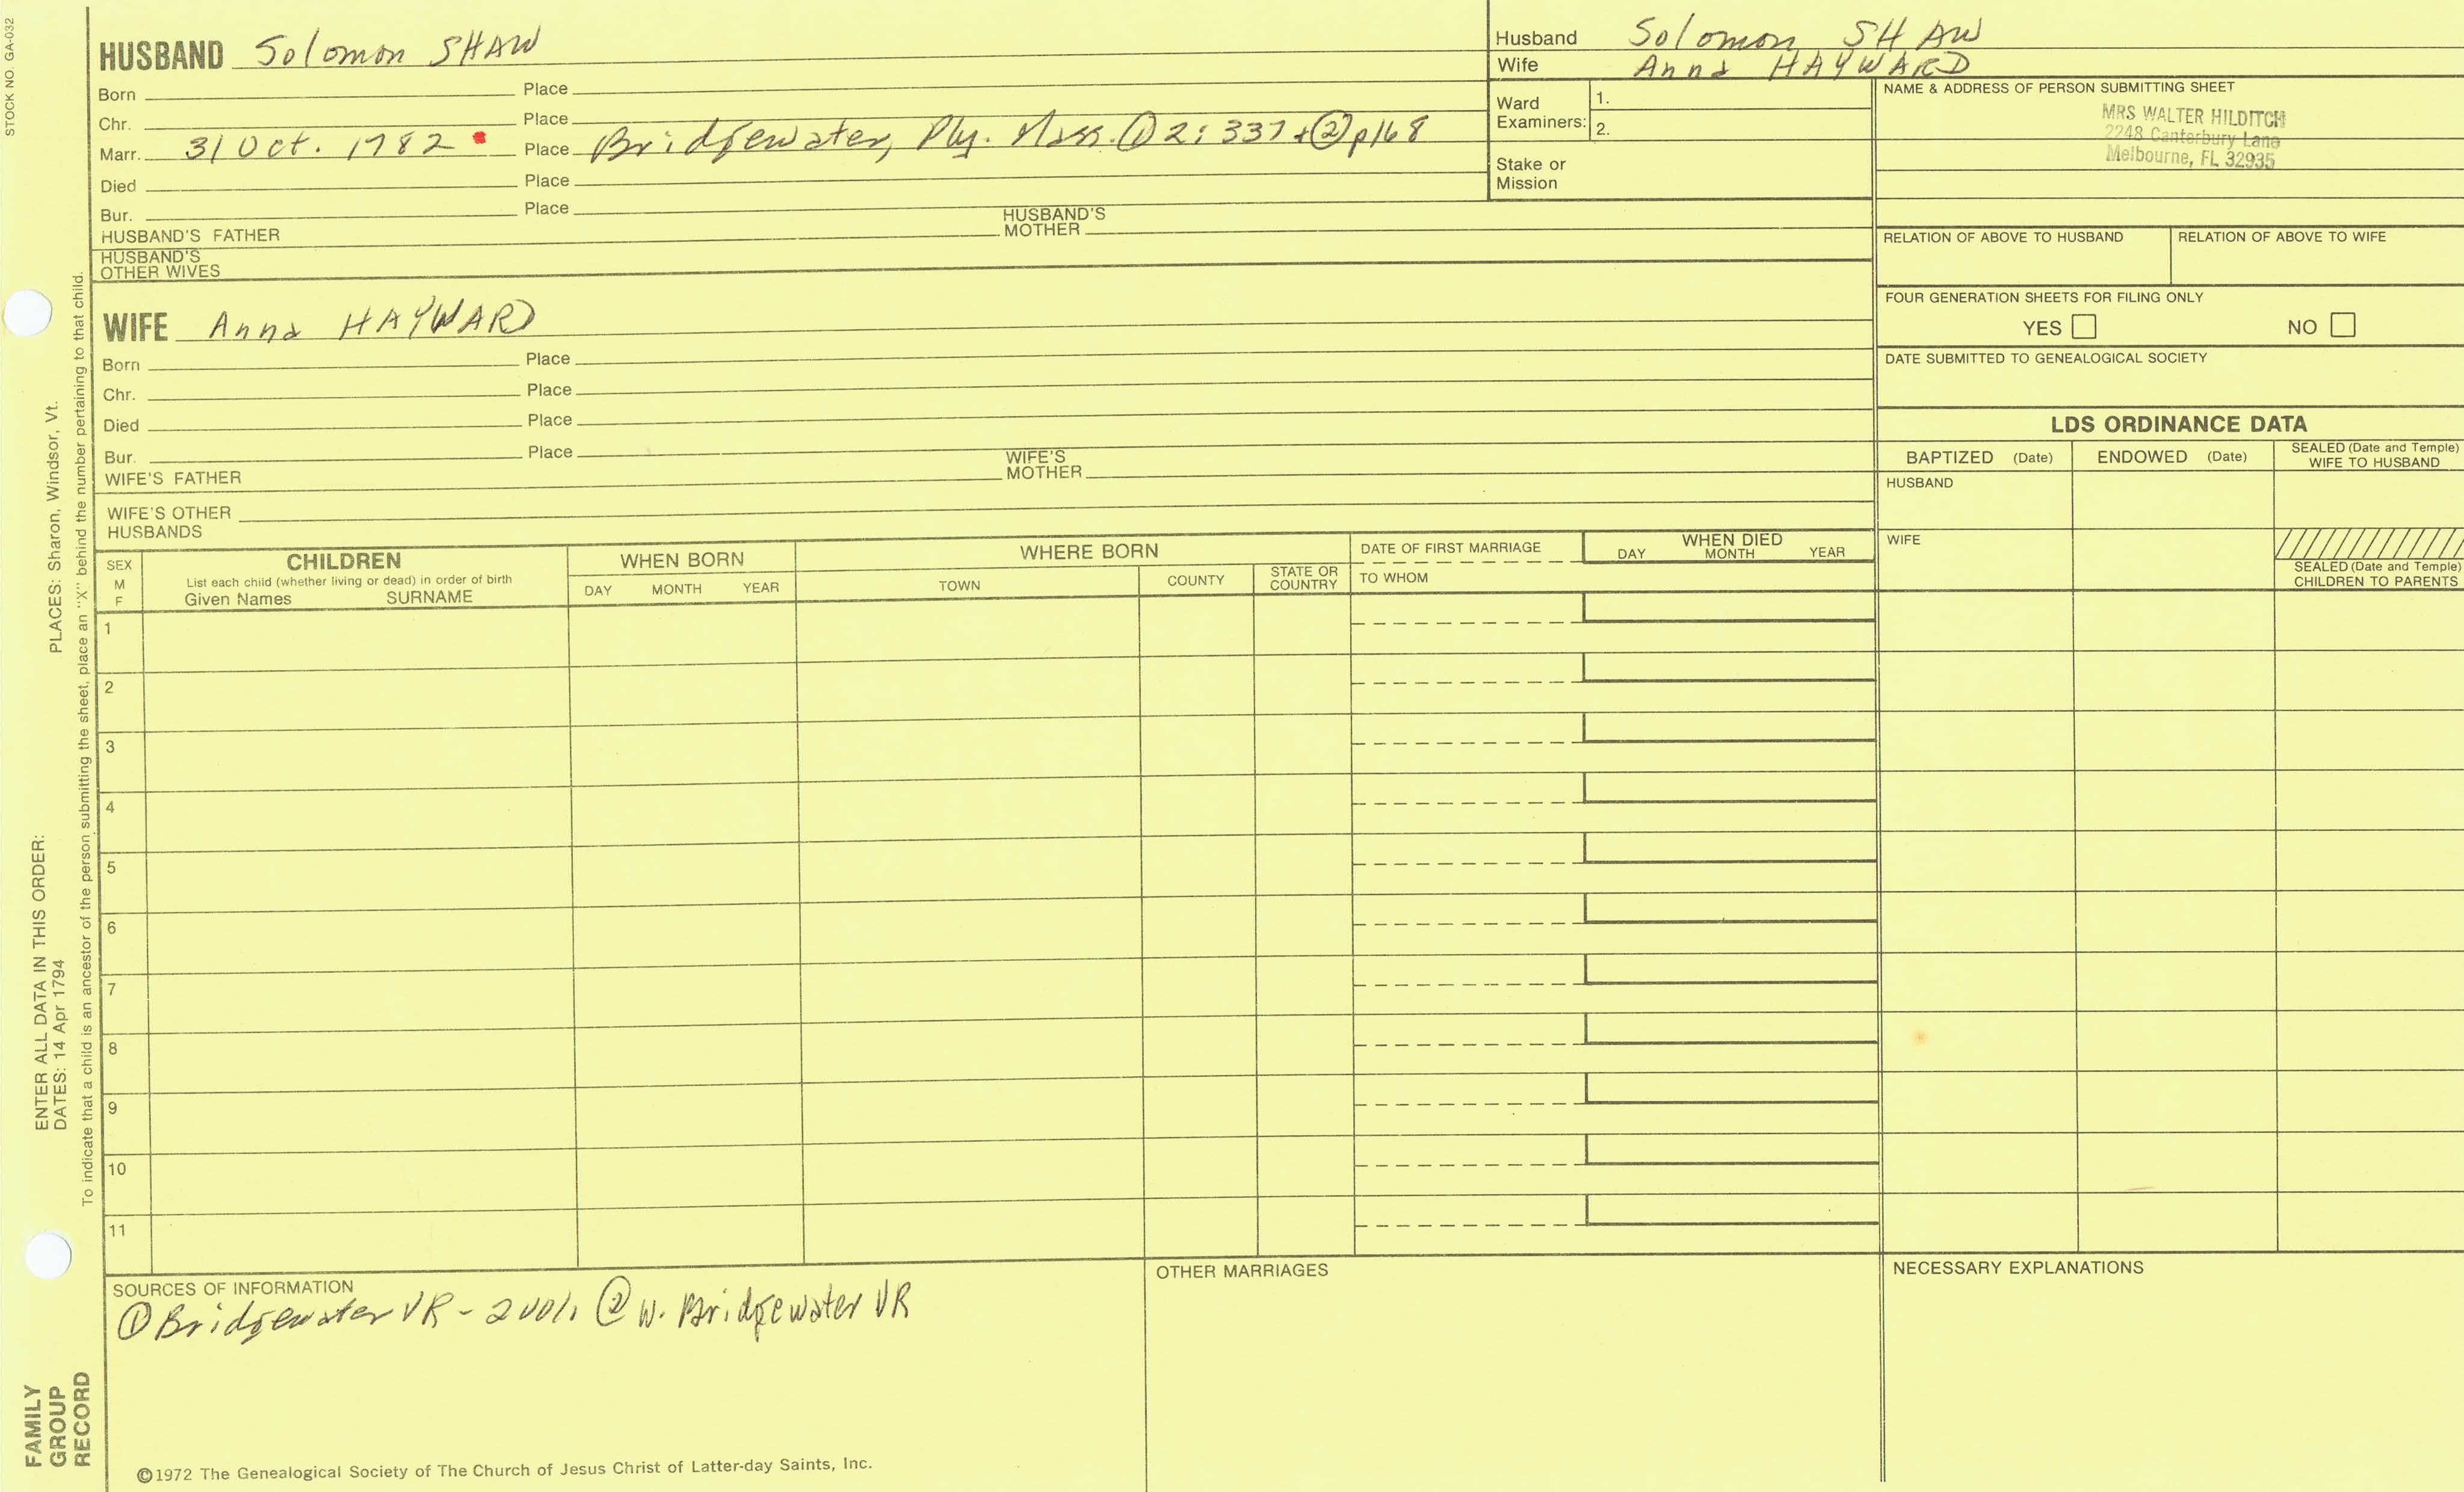 STOCK NO. GA-032
HUSBAND Solomon SHAW
Born Place
Chr. Place
Marr. 31 Oct. 1782 Place Bridgewater, Ply. Mass. ① 2:337 + ② p168
Died Place
Bur. Place
HUSBAND'S FATHER HUSBAND'S MOTHER
HUSBAND'S OTHER WIVES
Husband Solomon SHAW
Wife Anna HAYWARD
Ward Examiners: 1.
2.
Stake or Mission
NAME & ADDRESS OF PERSON SUBMITTING SHEET
MRS WALTER HILDITCH
2248 Canterbury Lane
Melbourne, FL 32935
RELATION OF ABOVE TO HUSBAND RELATION OF ABOVE TO WIFE
FOUR GENERATION SHEETS FOR FILING ONLY
YES NO
DATE SUBMITTED TO GENEALOGICAL SOCIETY
WIFE Anna HAYWARD
Born Place
Chr. Place
Died Place
Bur. Place
WIFE'S FATHER WIFE'S MOTHER
WIFE'S OTHER HUSBANDS
LDS ORDINANCE DATA
BAPTIZED (Date) ENDOWED (Date) SEALED (Date and Temple) WIFE TO HUSBAND
HUSBAND
WIFE
SEALED (Date and Temple) CHILDREN TO PARENTS
SEX M F
CHILDREN
List each child (whether living or dead) in order of birth
Given Names SURNAME
WHEN BORN
DAY MONTH YEAR
WHERE BORN
TOWN COUNTY STATE OR COUNTRY
DATE OF FIRST MARRIAGE
TO WHOM
WHEN DIED
DAY MONTH YEAR
1
2
3
4
5
6
7
8
9
10
11
SOURCES OF INFORMATION
① Bridgewater VR - 2 vol, ② W. Bridgewater VR
OTHER MARRIAGES
NECESSARY EXPLANATIONS
©1972 The Genealogical Society of The Church of Jesus Christ of Latter-day Saints, Inc.
FAMILY
GROUP
RECORD
ENTER ALL DATA IN THIS ORDER:
DATES: 14 Apr 1794 PLACES: Sharon, Windsor, Vt.
To indicate that a child is an ancestor of the person submitting the sheet, place an "X" behind the number pertaining to that child.